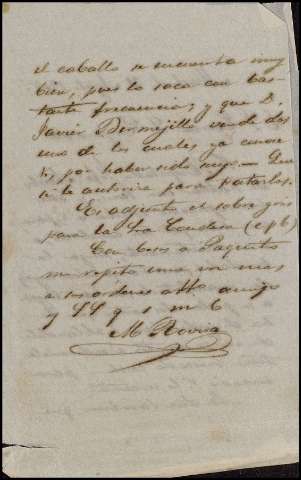 el caballo se encuentra muy
bien, pues lo saca con bas-
tante frecuencia; y que D.
Javier Bermejillo vende dos
uno de los cuales ya conoce
V., por haber sido suyo. — Que
si le autoriza para tratarlos.
Es adjunto el sobre gris
para la Sra Condesa (c p b)
Con besos a Paquito
se repite una vez mas
a sus ordenes atto amigo
y SS q s m b
M Rovira